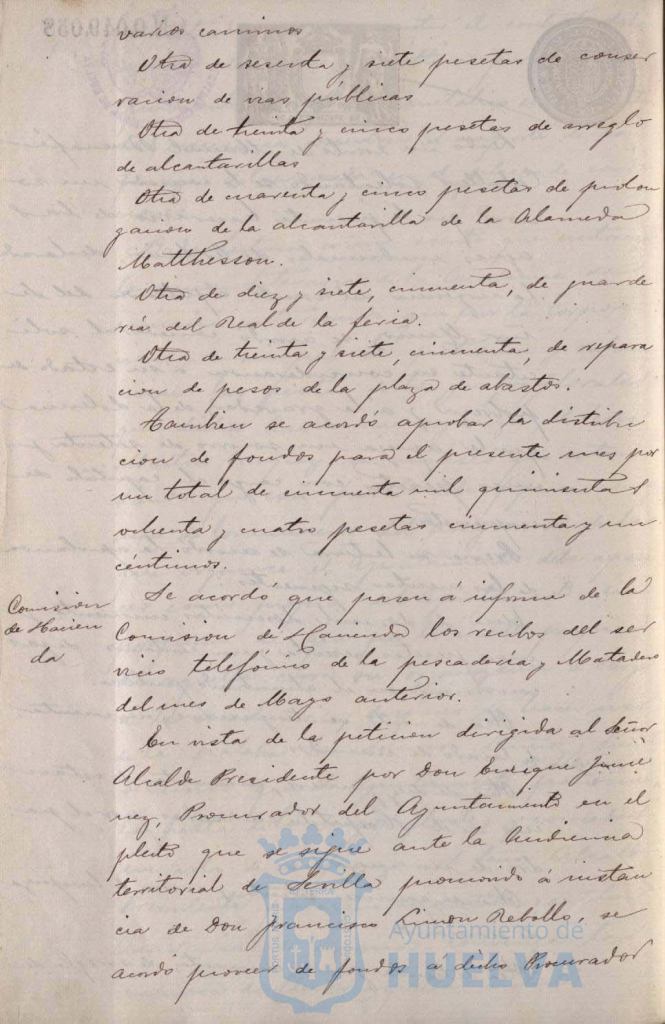 varios caminos
Otra de sesenta y siete pesetas de conser
vacion de vias públicas
Otra de treinta y cinco pesetas de arreglo
de alcantarillas
Otra de cuarenta y cinco pesetas de prolon
gacion de la alcantarilla de la Alameda
Matthesson.
Otra de diez y siete, cincuenta, de guarde
ria del Real de la feria.
Otra de treinta y siete, cincuenta, de repara
cion de pesos de la plaza de abastos.
Tambien se acordó aprobar la distribu
cion de fondos para el presente mes por
un total de cincuenta mil quinientas
ochenta y cuatro pesetas cincuenta y un
céntimos.
Comision
de Hacien
da
Se acordó que pasen á informe de la
Comision de Hacienda los recibos del ser
vicio telefónico de la pescadería y Matadero
del mes de Mayo anterior.
En vista de la peticion dirigida al Señor
Alcalde Presidente por Don Enrique Jime
nez, Procurador del Ayuntamiento en el
pleito que se sigue ante la Audiencia
territorial de Sevilla promovido á instan
cia de Don Francisco Limon Rebollo, se
acordó proveer de fondos á dicho Procurador
Ayuntamiento de
HUELVA